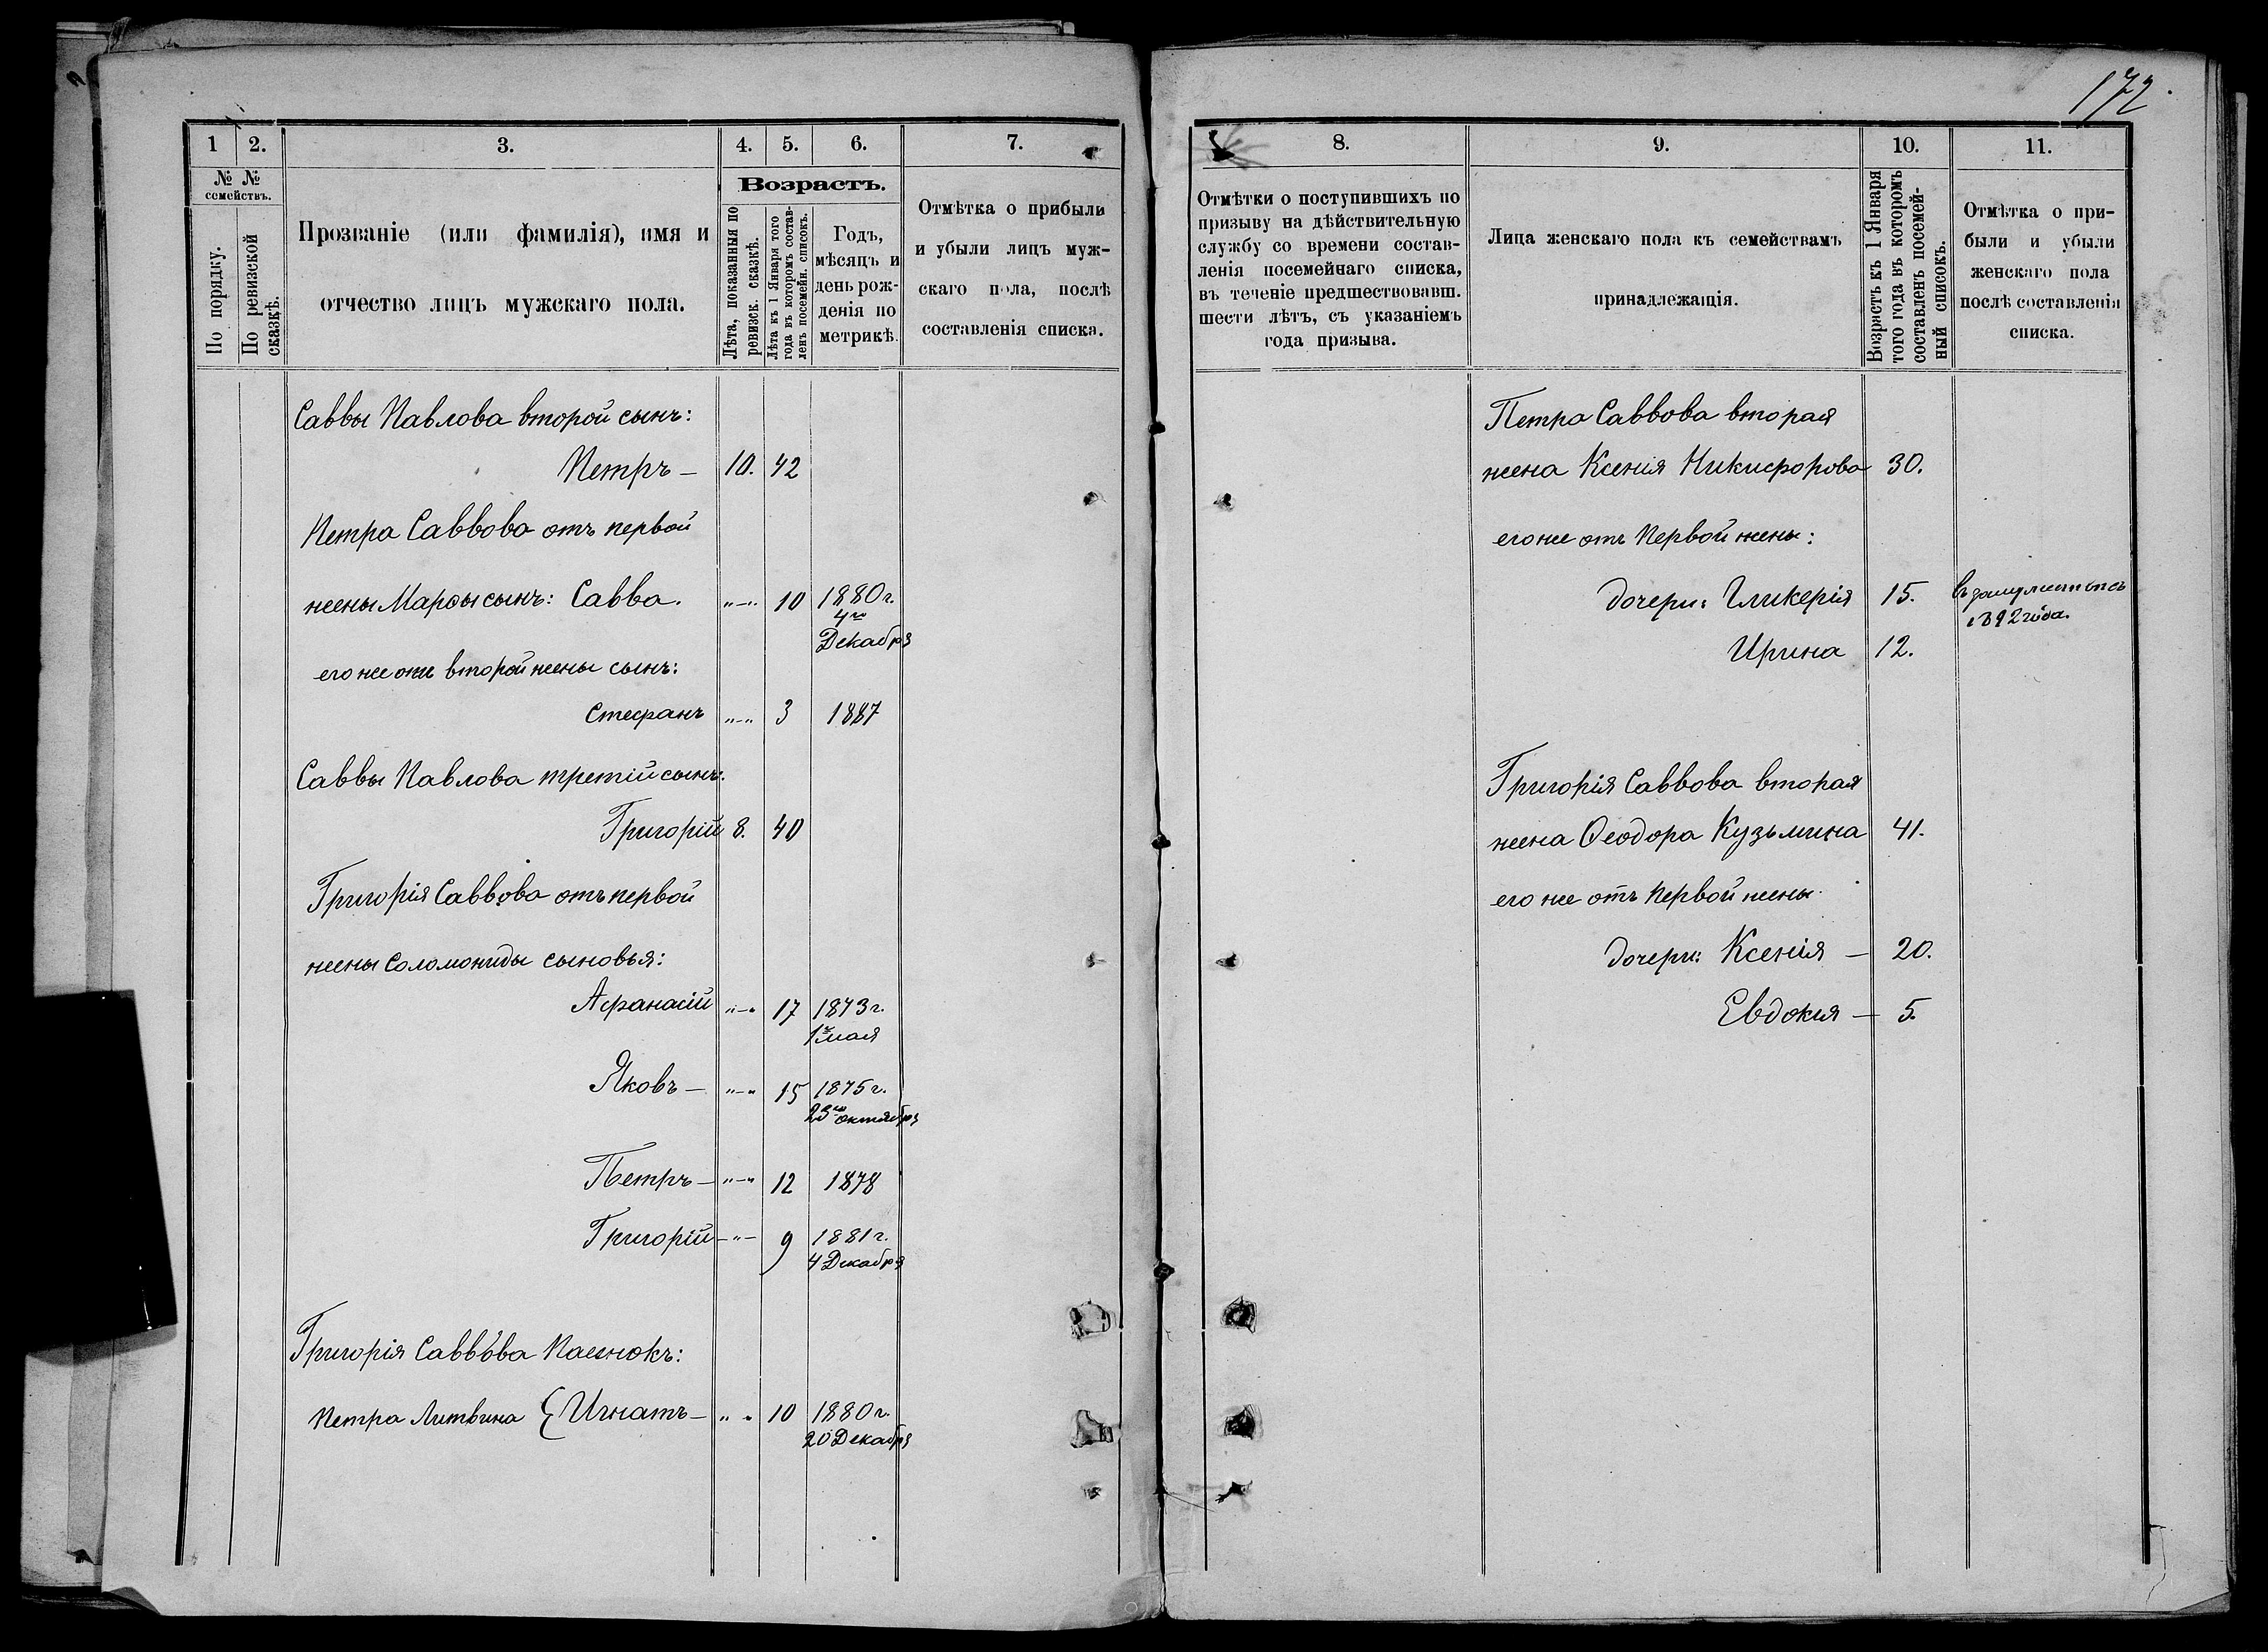 172.
1 2. 3. 4. 5. 6. 7.
№ № семействъ.
По порядку.
По ревизской сказкѣ.
Прозваніе (или фамилія), имя и
отчество лицъ мужскаго пола.
Возрастъ.
Лѣта, показанныя по
ревизск. сказкѣ.
Лѣта къ 1 Января того
года въ которомъ состав-
ленъ посемейн. списокъ.
Годъ,
мѣсяцъ и
день рож-
денія по
метрикѣ.
Отмѣтка о прибыли
и убыли лицъ муж-
скаго пола, послѣ
составленія списка.
Саввы Павлова второй сынъ:
Петръ — 10. 42
Петра Саввова отъ первой
жены Марѳы сынъ: Савва. „—„ 10 1880 г.
4го
Декабря
его же отъ второй жены сынъ:
Стефанъ „—„ 3 1887
Саввы Павлова третій сынъ:
Григорій 8. 40
Григорія Саввова отъ первой
жены Соломониды сыновья:
Афанасій „—„ 17 1873 г.
1го мая
Яковъ — „—„ 15 1875 г.
23го октября
Петръ — „—„ 12 1878
Григорій —„— 9 1881 г.
4 Декабря
Григорія Саввова
Петра Литвина { Игнатъ — „ „ 10 1880 г.
20 Декабря
8. 9. 10. 11.
Отмѣтки о поступившихъ по
призыву на дѣйствительную
службу со времени состав-
ленія посемейнаго списка,
въ теченіе предшествовавш.
шести лѣтъ, съ указаніемъ
года призыва.
Лица женскаго пола къ семействамъ
принадлежащія.
Возрастъ къ 1 Января
того года въ которомъ
составленъ посемей-
ный списокъ.
Отмѣтка о при-
были и убыли
женскаго пола
послѣ составленія
списка.
Петра Саввова вторая
жена Ксенія Никифорова 30.
его же отъ первой жены:
дочери: Гликерія 15. въ замужествѣ съ
1892 года.
Ирина 12.
Григорія Саввова вторая
жена Ѳеодора Кузьмина 41.
его же отъ первой жены
дочери: Ксенія — 20.
Евдокія — 5.